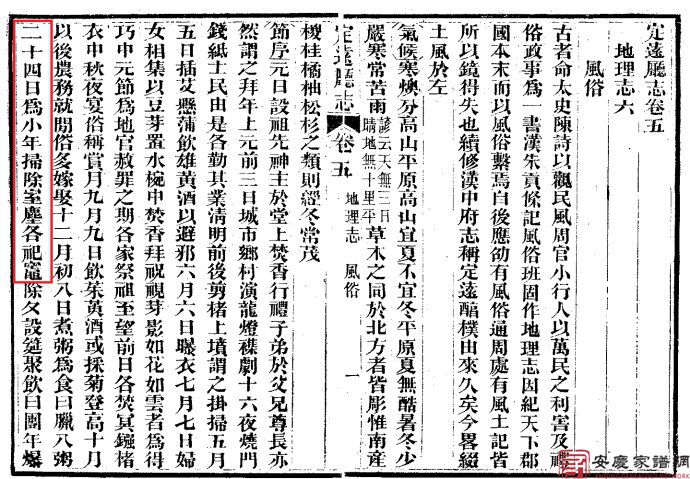 定遠廳志卷五
地理志六
風俗
古者命太史陳詩以觀民風周官小行人以萬民之利害及禮
俗政事爲一書漢朱貢條記風俗班固作地理志因紀天下郡
國本末而以風俗繫焉自後應劭有風俗通周處有風土記皆
所以鏡得失也續修漢中府志稱定遠醕樸由來久矣今畧綴
土風於左
氣候寒燠分高山平原高山宜夏不宜冬平原夏無酷暑冬少
嚴寒常苦雨諺云天無三日晴地無十里平草木之同於北方者皆彫惟南産
定遠廳志 卷五 地理志 風俗 一
椶桂橘柚松杉之類則經冬常茂
節序元日設祖先神主於堂上焚香行禮子弟於父兄尊長亦
然謂之拜年上元前三日城市鄉村演龍燈襍劇十六夜燒門
錢紙士民由是各勤其業清明前後剪楮上墳謂之掛掃五月
五日插艾懸蒲飲雄黃酒以避邪六月六日曝衣七月七日婦
女相集以豆芽置水椀中焚香拜祝視芽影如花如雲者爲得
巧中元節爲地官赦罪之期各家祭祖至望前日各焚冥鏹楮
衣中秋夜宴俗稱賞月九月九日飲茱黃酒或採菊登高十月
以後農務就閒俗多嫁娶十二月初八日煮粥爲食曰臘八粥
二十四日爲小年掃除室塵各祀竈除夕設筵聚飲曰團年爆
安慶家譜網